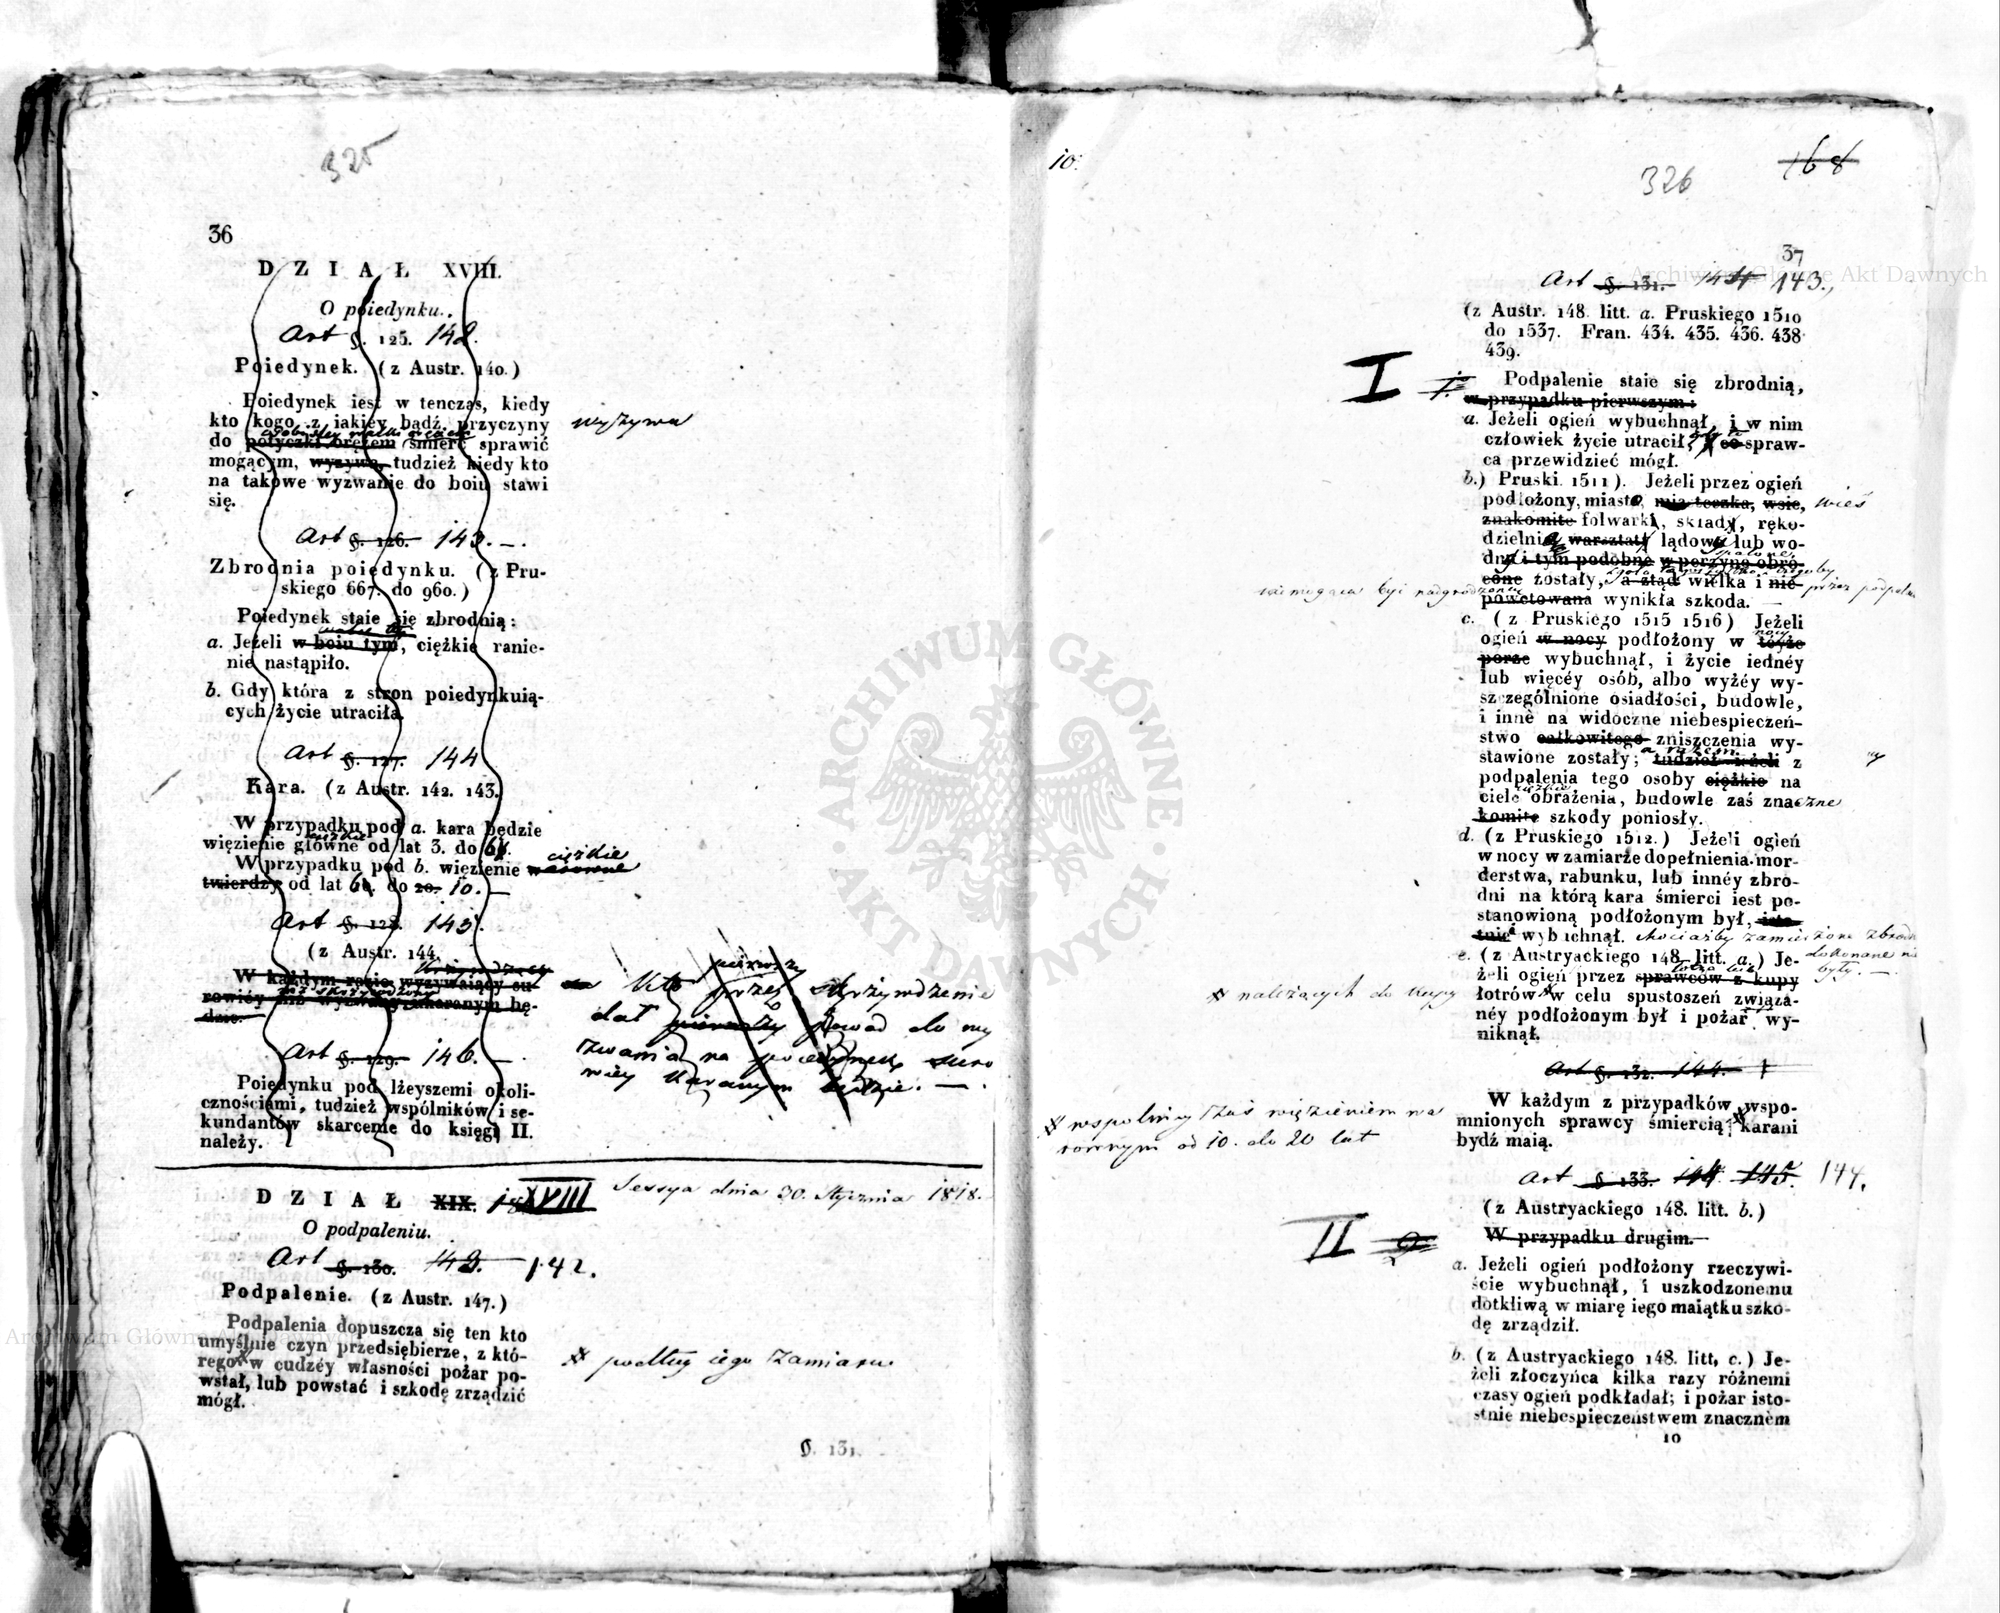 325
36
DZIAŁ XVIII.
O poiedynku.
Art §. 125. 142.
Poiedynek. (z Austr. 140.)
Poiedynek iest w tenczas, kiedy
kto kogo z iakiéy bądź przyczyny
do potyczki orężem śmierć sprawić
mogącym, wyzywa, tudzież kiedy kto
na takowe wyzwanie do boiu stawi
się.
wyzywa
Art §. 126. 143.
Zbrodnia poiedynku. (z Pru-
skiego 667. do 960.)
Poiedynek staie się zbrodnią:
a. Jeżeli w boiu tym, ciężkie ranie-
nie nastąpiło.
b. Gdy która z stron poiedynkuią-
cych życie utraciła.
Art §. 127. 144
Kara. (z Austr. 142. 143.)
W przypadku pod a. kara będzie
ciężkie
więzienie główne od lat 3. do 6.
W przypadku pod b. więzienie warowne
ciężkie
twierdzy od lat 6. do 20. 10.
Art §. 128. 145.
(z Austr. 144.
W każdym razie wyzywaiący su-
rowiéy niż wyzwany ukaranym bę-
dzie.
pierwszy
Kto przez skrzywdzenie
dał pierwszy powód do wy
zwania na poiedynek suro
wiey karanym będzie.
Art §. 129. 146.
Poiedynku pod lżeyszemi okoli-
cznościami, tudzież wspólników i se-
kundantów skarcenie do księgi II.
należy.
DZIAŁ XIX. 18 XVIII
Sessya dnia 30. Stycznia 1818.
O podpaleniu.
Art §. 130. 142.
Podpalenie. (z Austr. 147.)
Podpalenia dopuszcza się ten kto
umyślnie czyn przedsiębierze, z któ-
rego w cudzéy własności pożar po-
wstał, lub powstać i szkodę zrządzić
mógł.
podług iego zamiaru
§. 131.
10.
168
326
37
Art §. 131. 144 143.
(z Austr. 148. litt. a. Pruskiego 1510
do 1537. Fran. 434. 435. 436. 438
439.
I 1.
Podpalenie staie się zbrodnią,
w przypadku pierwszym:
a. Jeżeli ogień wybuchnął, i w nim
człowiek życie utracił, co spraw-
ca przewidzieć mógł.
b.) Pruski. 1511). Jeżeli przez ogień
podłożony, miasto, miasteczka, wsie, wieś
znakomite folwarki, składy, ręko-
dzielnia warsztaty lądowy lub wo-
dny i tym podobne w perzynę obró-
spalone
cone zostały, a ztąd wielka i nie-
powetowana wynikła szkoda.
niemogąca być nadgrodzoną
przez podpala
c. (z Pruskiego 1515 1516) Jeżeli
ogień w nocy podłożony w téyże
nocy
porze wybuchnął, i życie iednéy
lub więcéy osób, albo wyżéy wy-
szczególnione osiadłości, budowle,
i inne na widoczne niebespieczeń-
stwo całkowitego zniszczenia wy-
stawione zostały; tudzież ieżeli z
a razem
podpalenia tego osoby ciężkie na
ciele obrażenia, budowle zaś znaczne
ciężkie
komite szkody poniosły.
d. (z Pruskiego 1512.) Jeżeli ogień
w nocy w zamiarze dopełnienia mor-
derstwa, rabunku, lub innéy zbro-
dni na którą kara śmierci iest po-
stanowioną podłożonym był, isto-
tnie wybuchnął. chociażby zamierzone zbrodnie
dokonane nie
były.
e. (z Austryackiego 148. litt. a.) Je-
żeli ogień przez sprawców z kupy
łotrów w celu spustoszeń związa-
néy podłożonym był i pożar wy-
niknął.
należących do kupy
Art §. 132. 144.
W każdym z przypadków wspo-
mnionych sprawcy śmiercią karani
bydź maią.
wspolnicy zaś więzieniem wa
rownym od 10. do 20 lat
Art § 133. 144. 145. 144.
(z Austryackiego 148. litt. b.)
II 2
W przypadku drugim.
a. Jeżeli ogień podłożony rzeczywi-
ście wybuchnął, i uszkodzonemu
dotkliwą w miarę iego maiątku szko-
dę zrządził.
b. (z Austryackiego 148. litt. c.) Je-
żeli złoczyńca kilka razy różnemi
czasy ogień podkładał; i pożar isto-
tnie niebespieczeństwem znaczném
10
ARCHIWUM GŁÓWNE AKT DAWNYCH
Archiwum Główne Akt Dawnych
Archiwum Główne Akt Dawnych